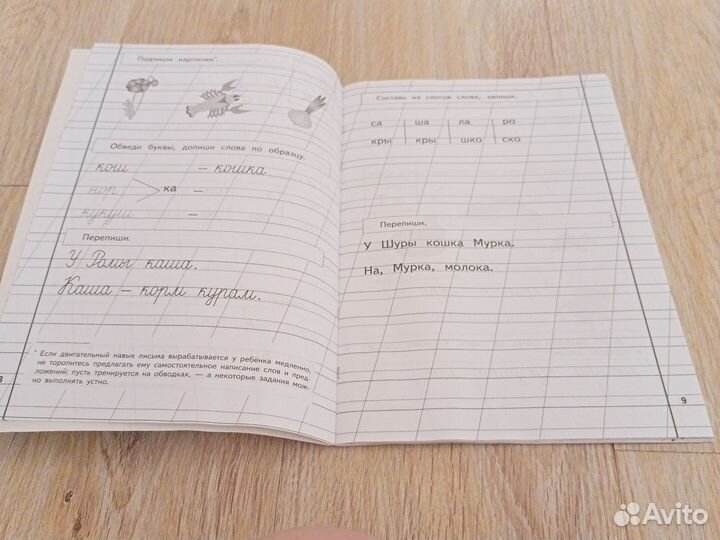 Подпиши картинки*.
Обведи буквы, допиши слова по образцу.
кош – кошка
нор ка –
кукуш –
Перепиши.
У Ромы каша.
Каша – корм курам.
* Если двигательный навык письма вырабатывается у ребёнка медленно,
не торопитесь предлагать ему самостоятельное написание слов и пред-
ложений: пусть тренируется на обводках, — а некоторые задания мож-
но выполнять устно.
8
Составь из слогов слова, запиши.
са ша ла ро
кры кры шко ско
Перепиши.
У Шуры кошка Мурка.
На, Мурка, молока.
9
Avito